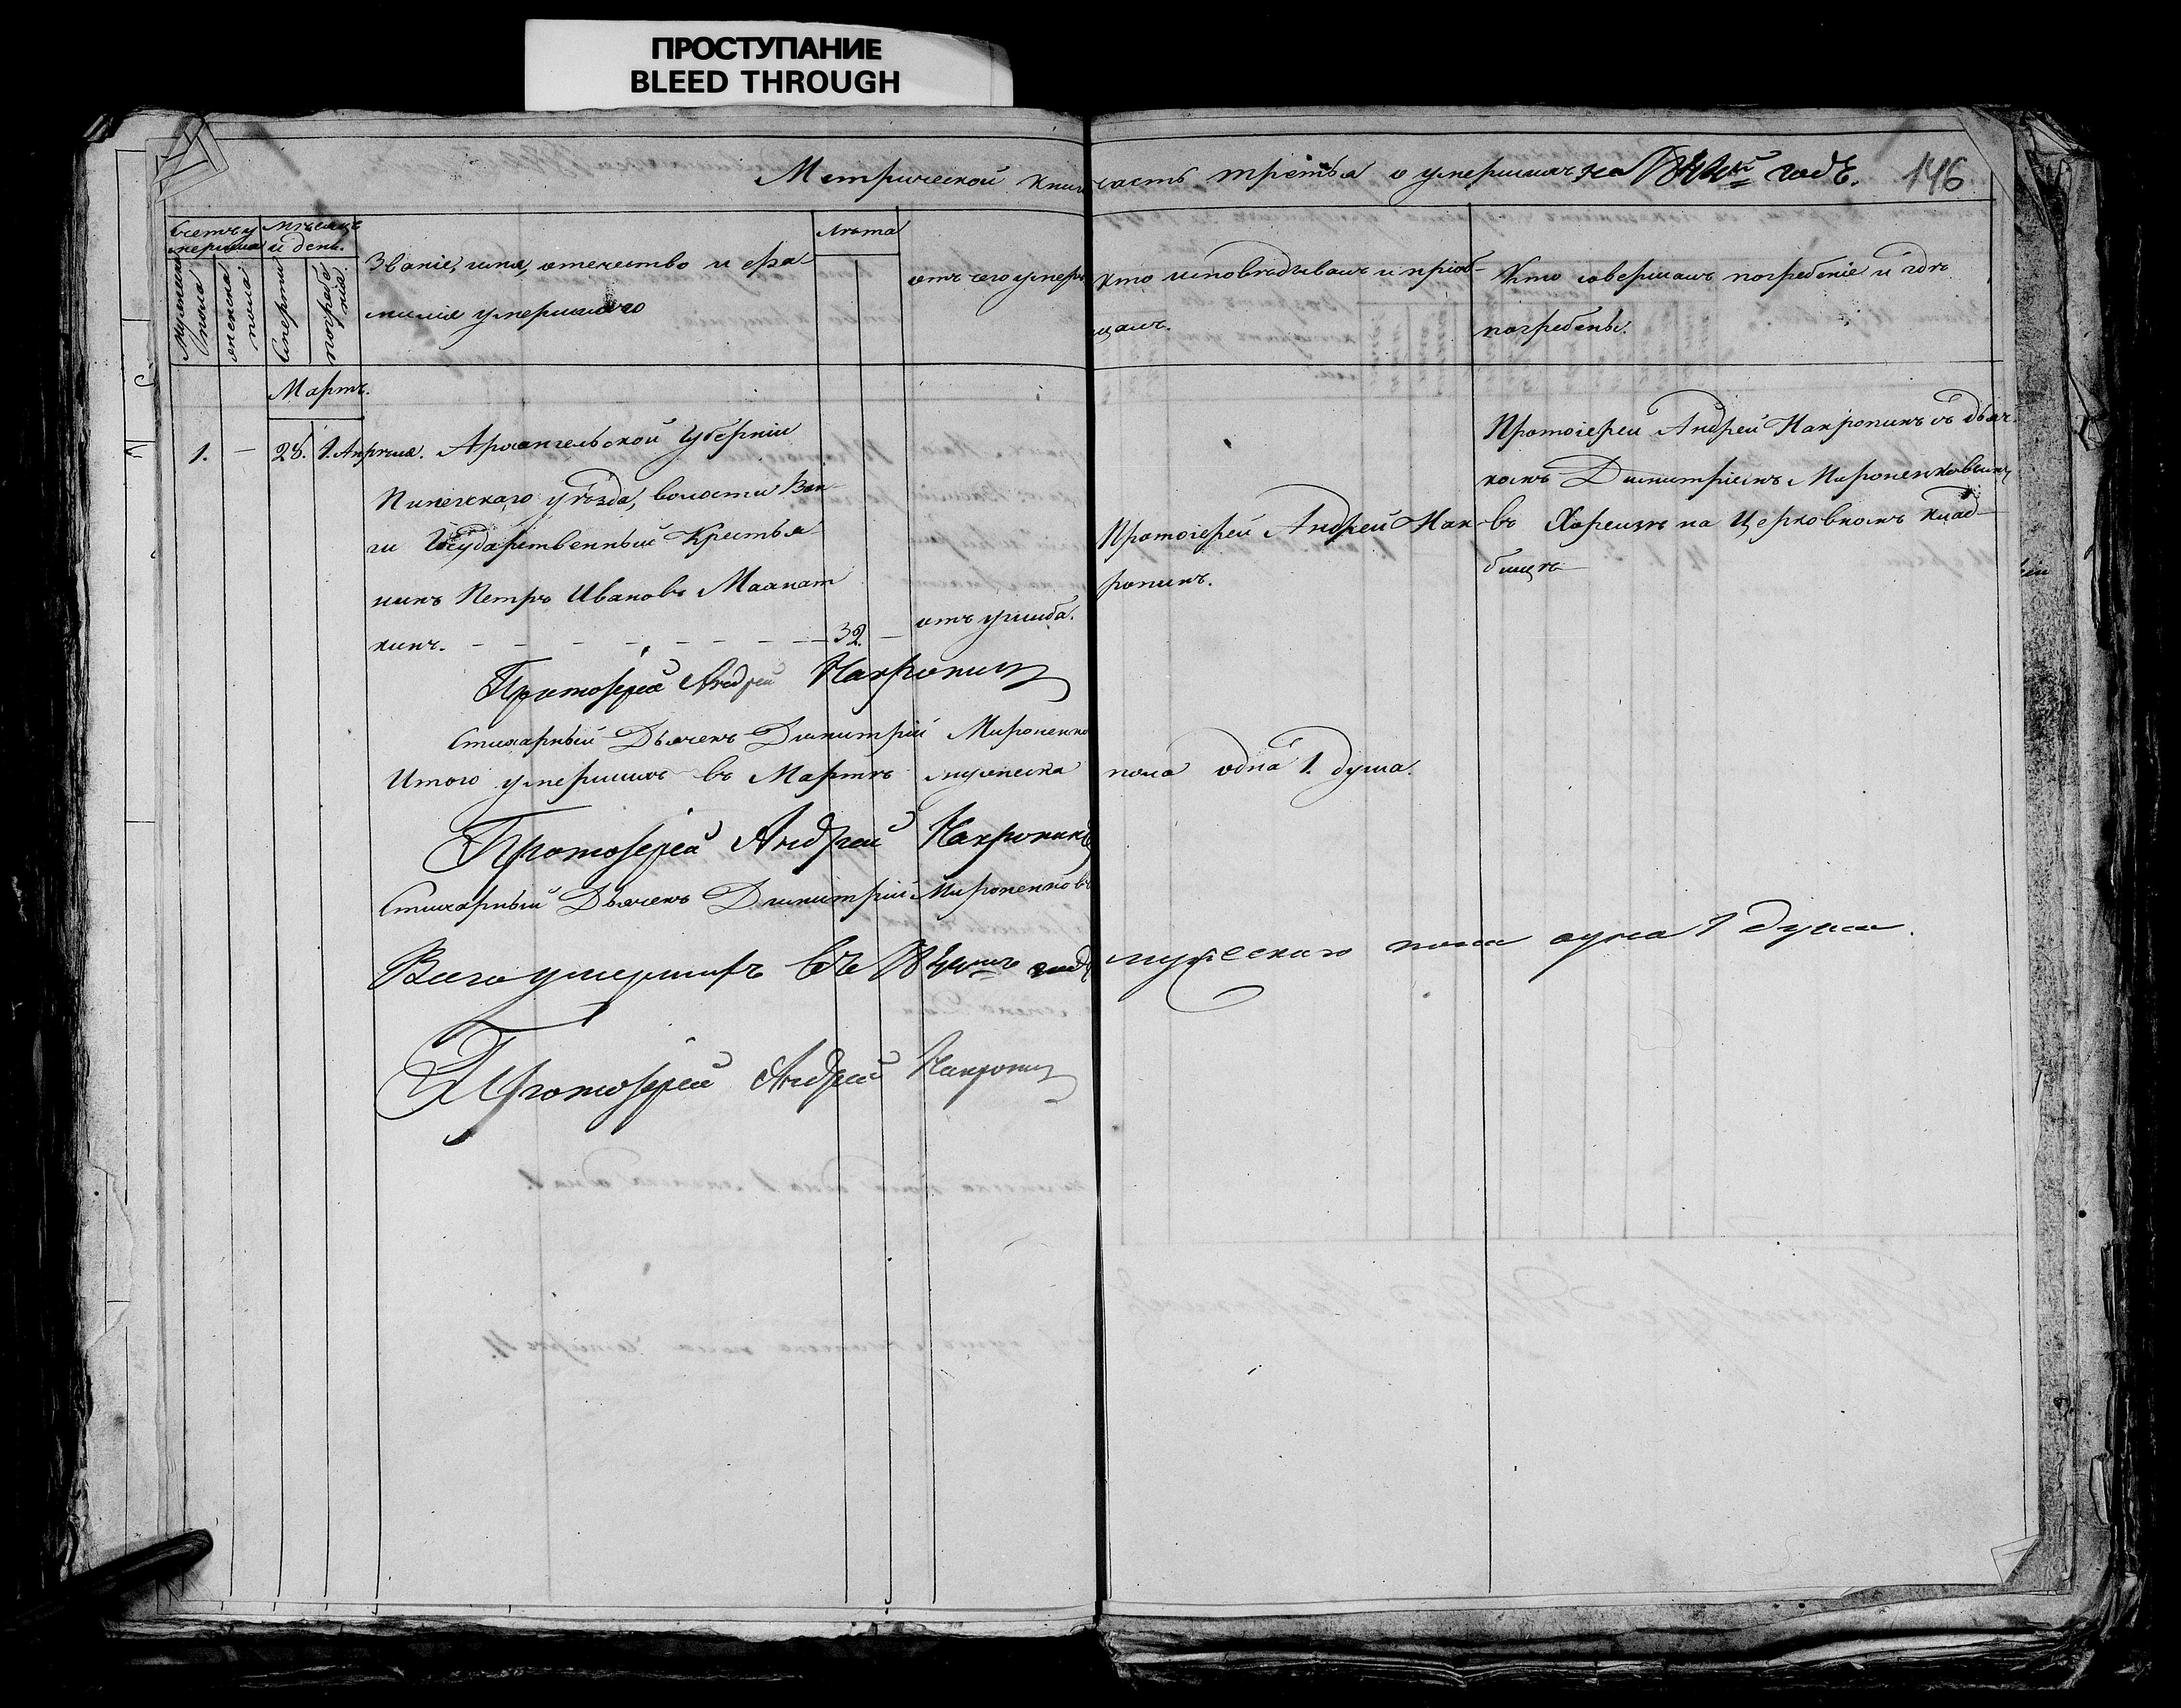 ПРОСТУПАНИЕ
BLEED THROUGH
Метрической книги часть третья о умершихъ на 1844й годъ. 146
Счетъ умерших
Мужеска пола
женска пола
Мѣсяцъ и день.
Смерти
погребенія.
Званіе, имя, отечество и фамилія умершаго
Лѣта
отъ чего умеръ
Кто исповѣдывалъ и пріобщалъ.
Кто совершалъ погребеніе и гдѣ погребены.
Мартъ.
1. — 28. 1. Апрѣля. Архангельской Губерніи
Пинежскаго уѣзда, волости
Государственный Крестья-
нинъ Петръ Ивановъ
кинъ. — — — — — — — 32. — отъ ушиба.
Протоіерей Андрей Накропинъ.
Протоіерей Андрей Накропинъ съ дьяч-
комъ Димитріемъ Мироненковымъ
въ на Церковномъ клад-
бищѣ
Протоіерей Андрей Накропинъ
Стихарный Дьячекъ Димитрій Мироненко
Итого умершихъ въ Мартѣ мужеска пола одна 1. душа.
Протоіерей Андрей Накропинъ
Стихарный Дьячекъ Димитрій Мироненковъ
Всего умершихъ въ 1844мъ годѣ мужескаго пола одна 1 душа.
Протоіерей Андрей Накропинъ